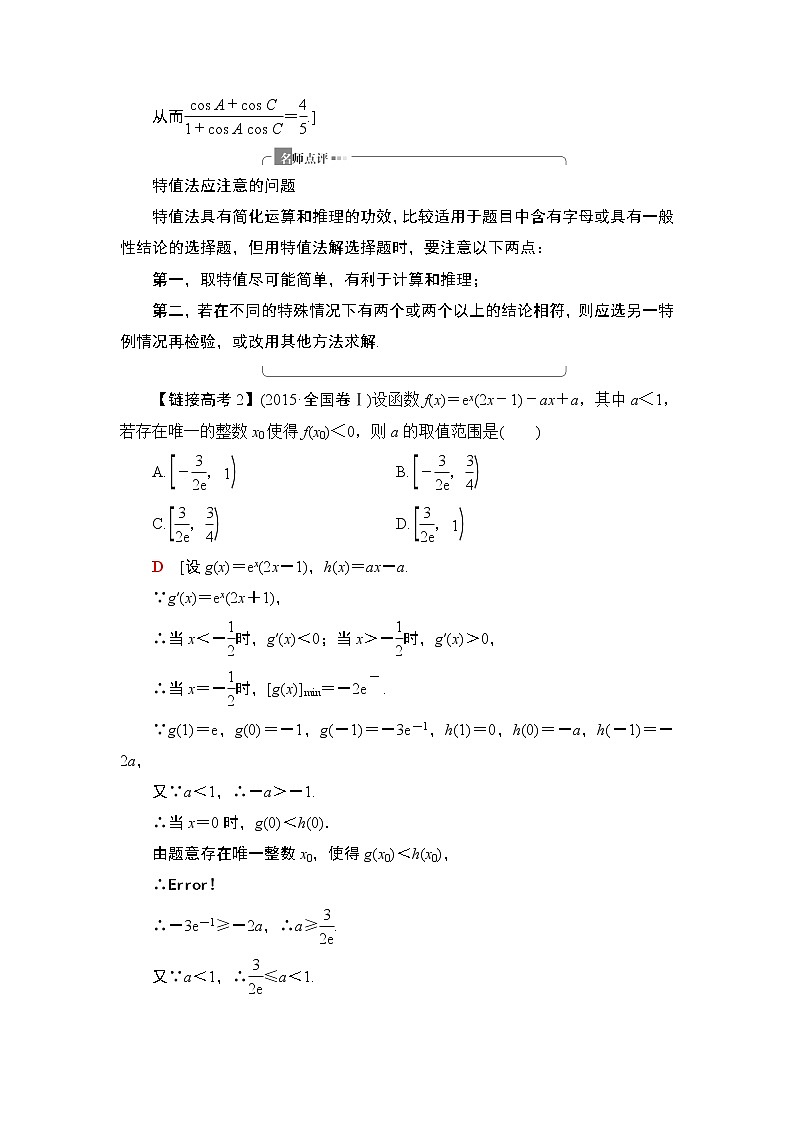 从而(cos A+cos C)/(1+cos A cos C)=4/5.]
名师点评
特值法应注意的问题
特值法具有简化运算和推理的功效，比较适用于题目中含有字母或具有一般
性结论的选择题，但用特值法解选择题时，要注意以下两点：
第一，取特值尽可能简单，有利于计算和推理；
第二，若在不同的特殊情况下有两个或两个以上的结论相符，则应选另一特
例情况再检验，或改用其他方法求解.
【链接高考2】(2015·全国卷Ⅰ)设函数 f(x)=eˣ(2x-1)-ax+a，其中 a＜1，
若存在唯一的整数 x₀使得 f(x₀)＜0，则 a 的取值范围是(　　)
A.[-3/2e，1)　B.[-3/2e，3/4)
C.[3/2e，3/4)　D.[3/2e，1)
D　[设 g(x)=eˣ(2x-1)，h(x)=ax-a.
∵g′(x)=eˣ(2x+1)，
∴当 x＜-1/2时，g′(x)＜0；当 x＞-1/2时，g′(x)＞0，
∴当 x=-1/2时，[g(x)]min=-2e⁻.
∵g(1)=e，g(0)=-1，g(-1)=-3e⁻¹，h(1)=0，h(0)=-a，h(-1)=-
2a，
又∵a＜1，∴-a＞-1.
∴当 x=0 时，g(0)＜h(0).
由题意存在唯一整数 x₀，使得 g(x₀)＜h(x₀)，
∴Error!
∴-3e⁻¹≥-2a，∴a≥3/2e.
又∵a＜1，∴3/2e≤a＜1.